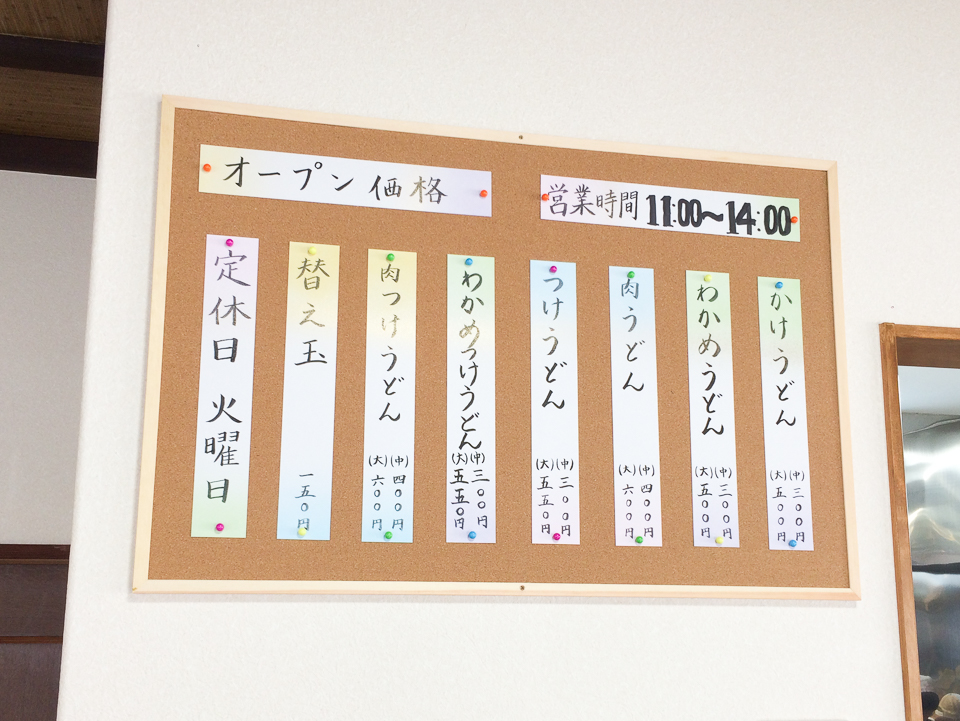 オープン価格
営業時間 11:00〜14:00
かけうどん
(中)三〇〇円
(大)五〇〇円
わかめうどん
(中)三〇〇円
(大)五〇〇円
肉うどん
(中)四〇〇円
(大)六〇〇円
つけうどん
(中)三〇〇円
(大)五五〇円
わかめつけうどん
(中)三〇〇円
(大)五五〇円
肉つけうどん
(中)四〇〇円
(大)六〇〇円
替え玉
一五〇円
定休日 火曜日